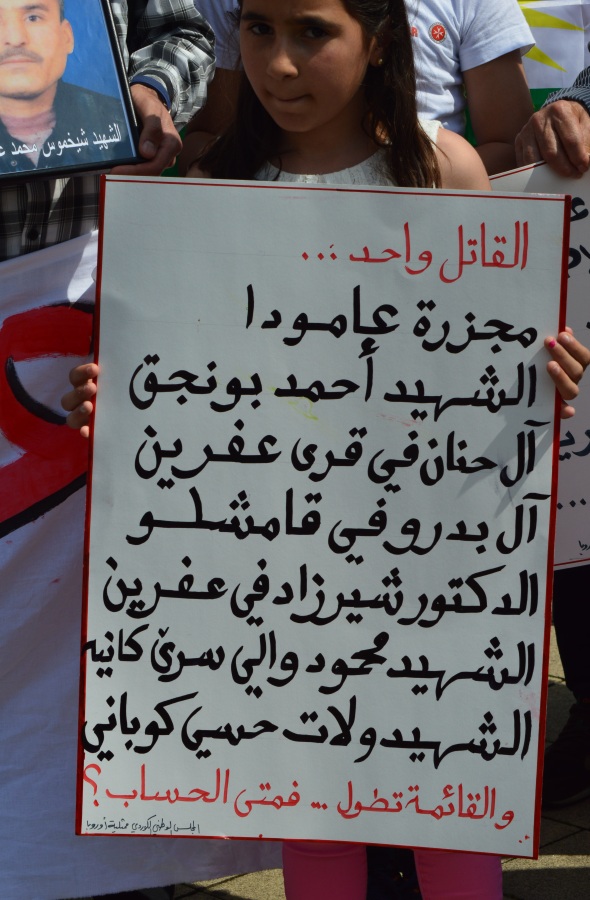 الشهيد شيخموس محمد
القاتل واحد ...
مجزرة عامودا
الشهيد أحمد بونجق
آل حنان في قرى عفرين
آل بدرو في قامشلو
الدكتور شيرزاد في عفرين
الشهيد محمود والي سرێ كانيه
الشهيد ولات حسي كوباني
والقائمة تطول ... فمتى الحساب ؟
المجلس الوطني الكوردي ممثلية أوروبا